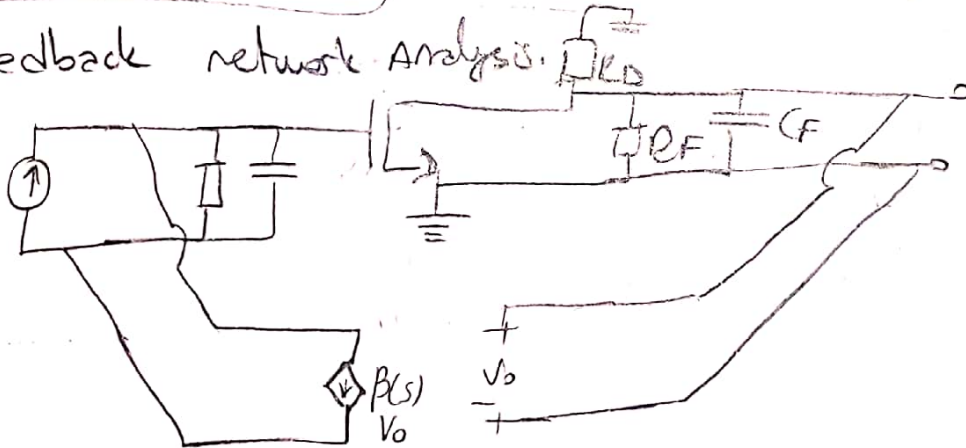 edback network Analysis.
RD
RF
CF
β(s)
Vo
+
Vo
-
+